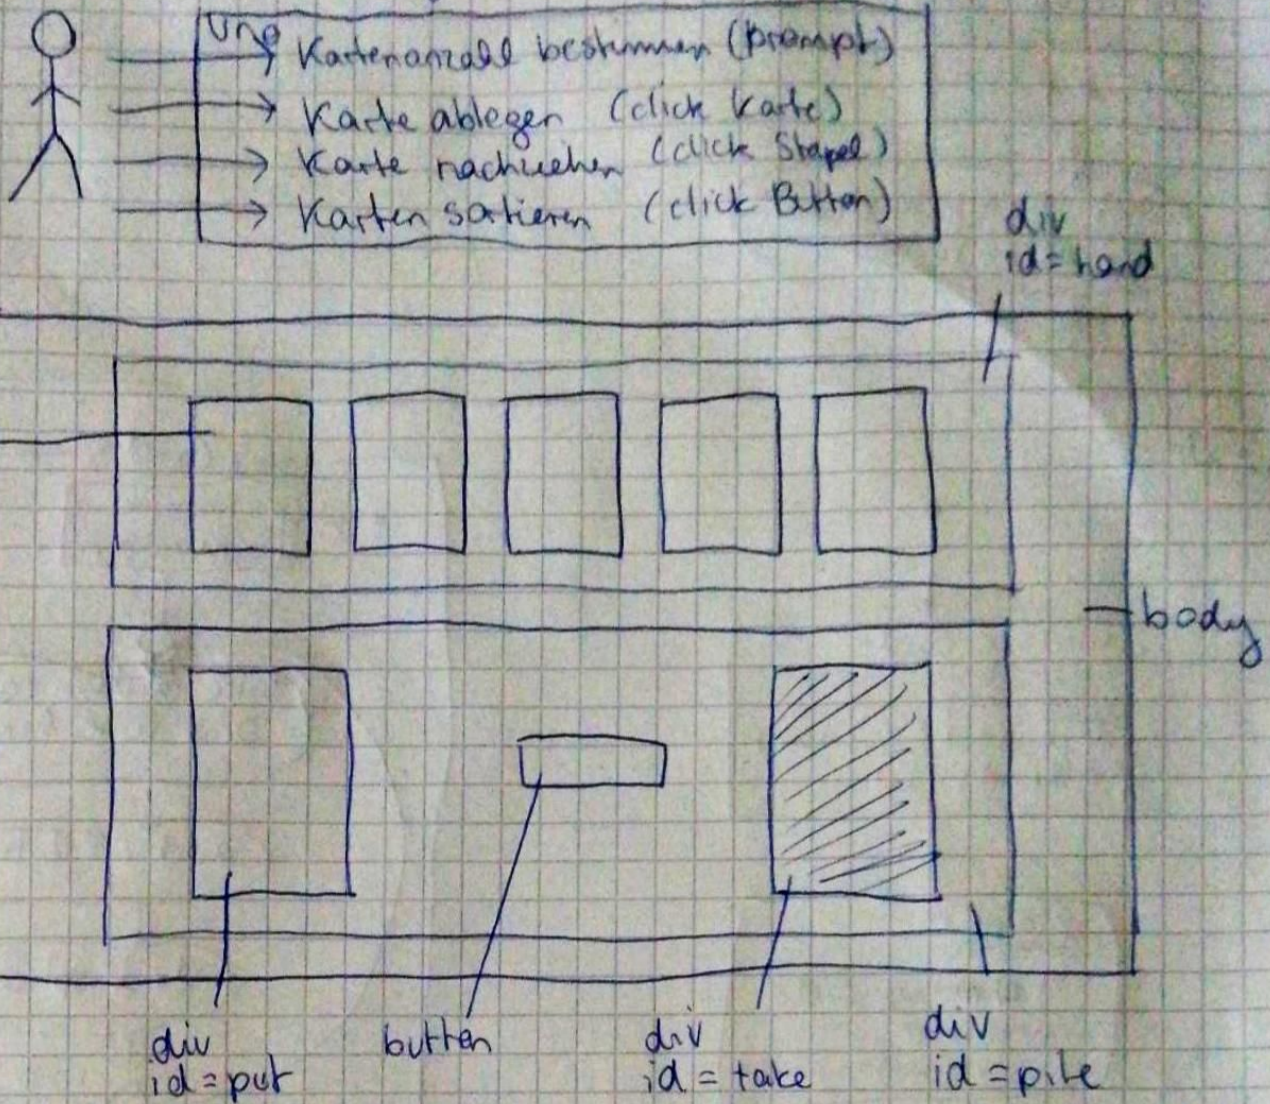 Uno
Kartenanzahl bestimmen (prompt)
Karte ablegen (click Karte)
Karte nachziehen (click Stapel)
Karten sortieren (click Button)
div
id = hand
body
div
id = put
button
div
id = take
div
id = pile